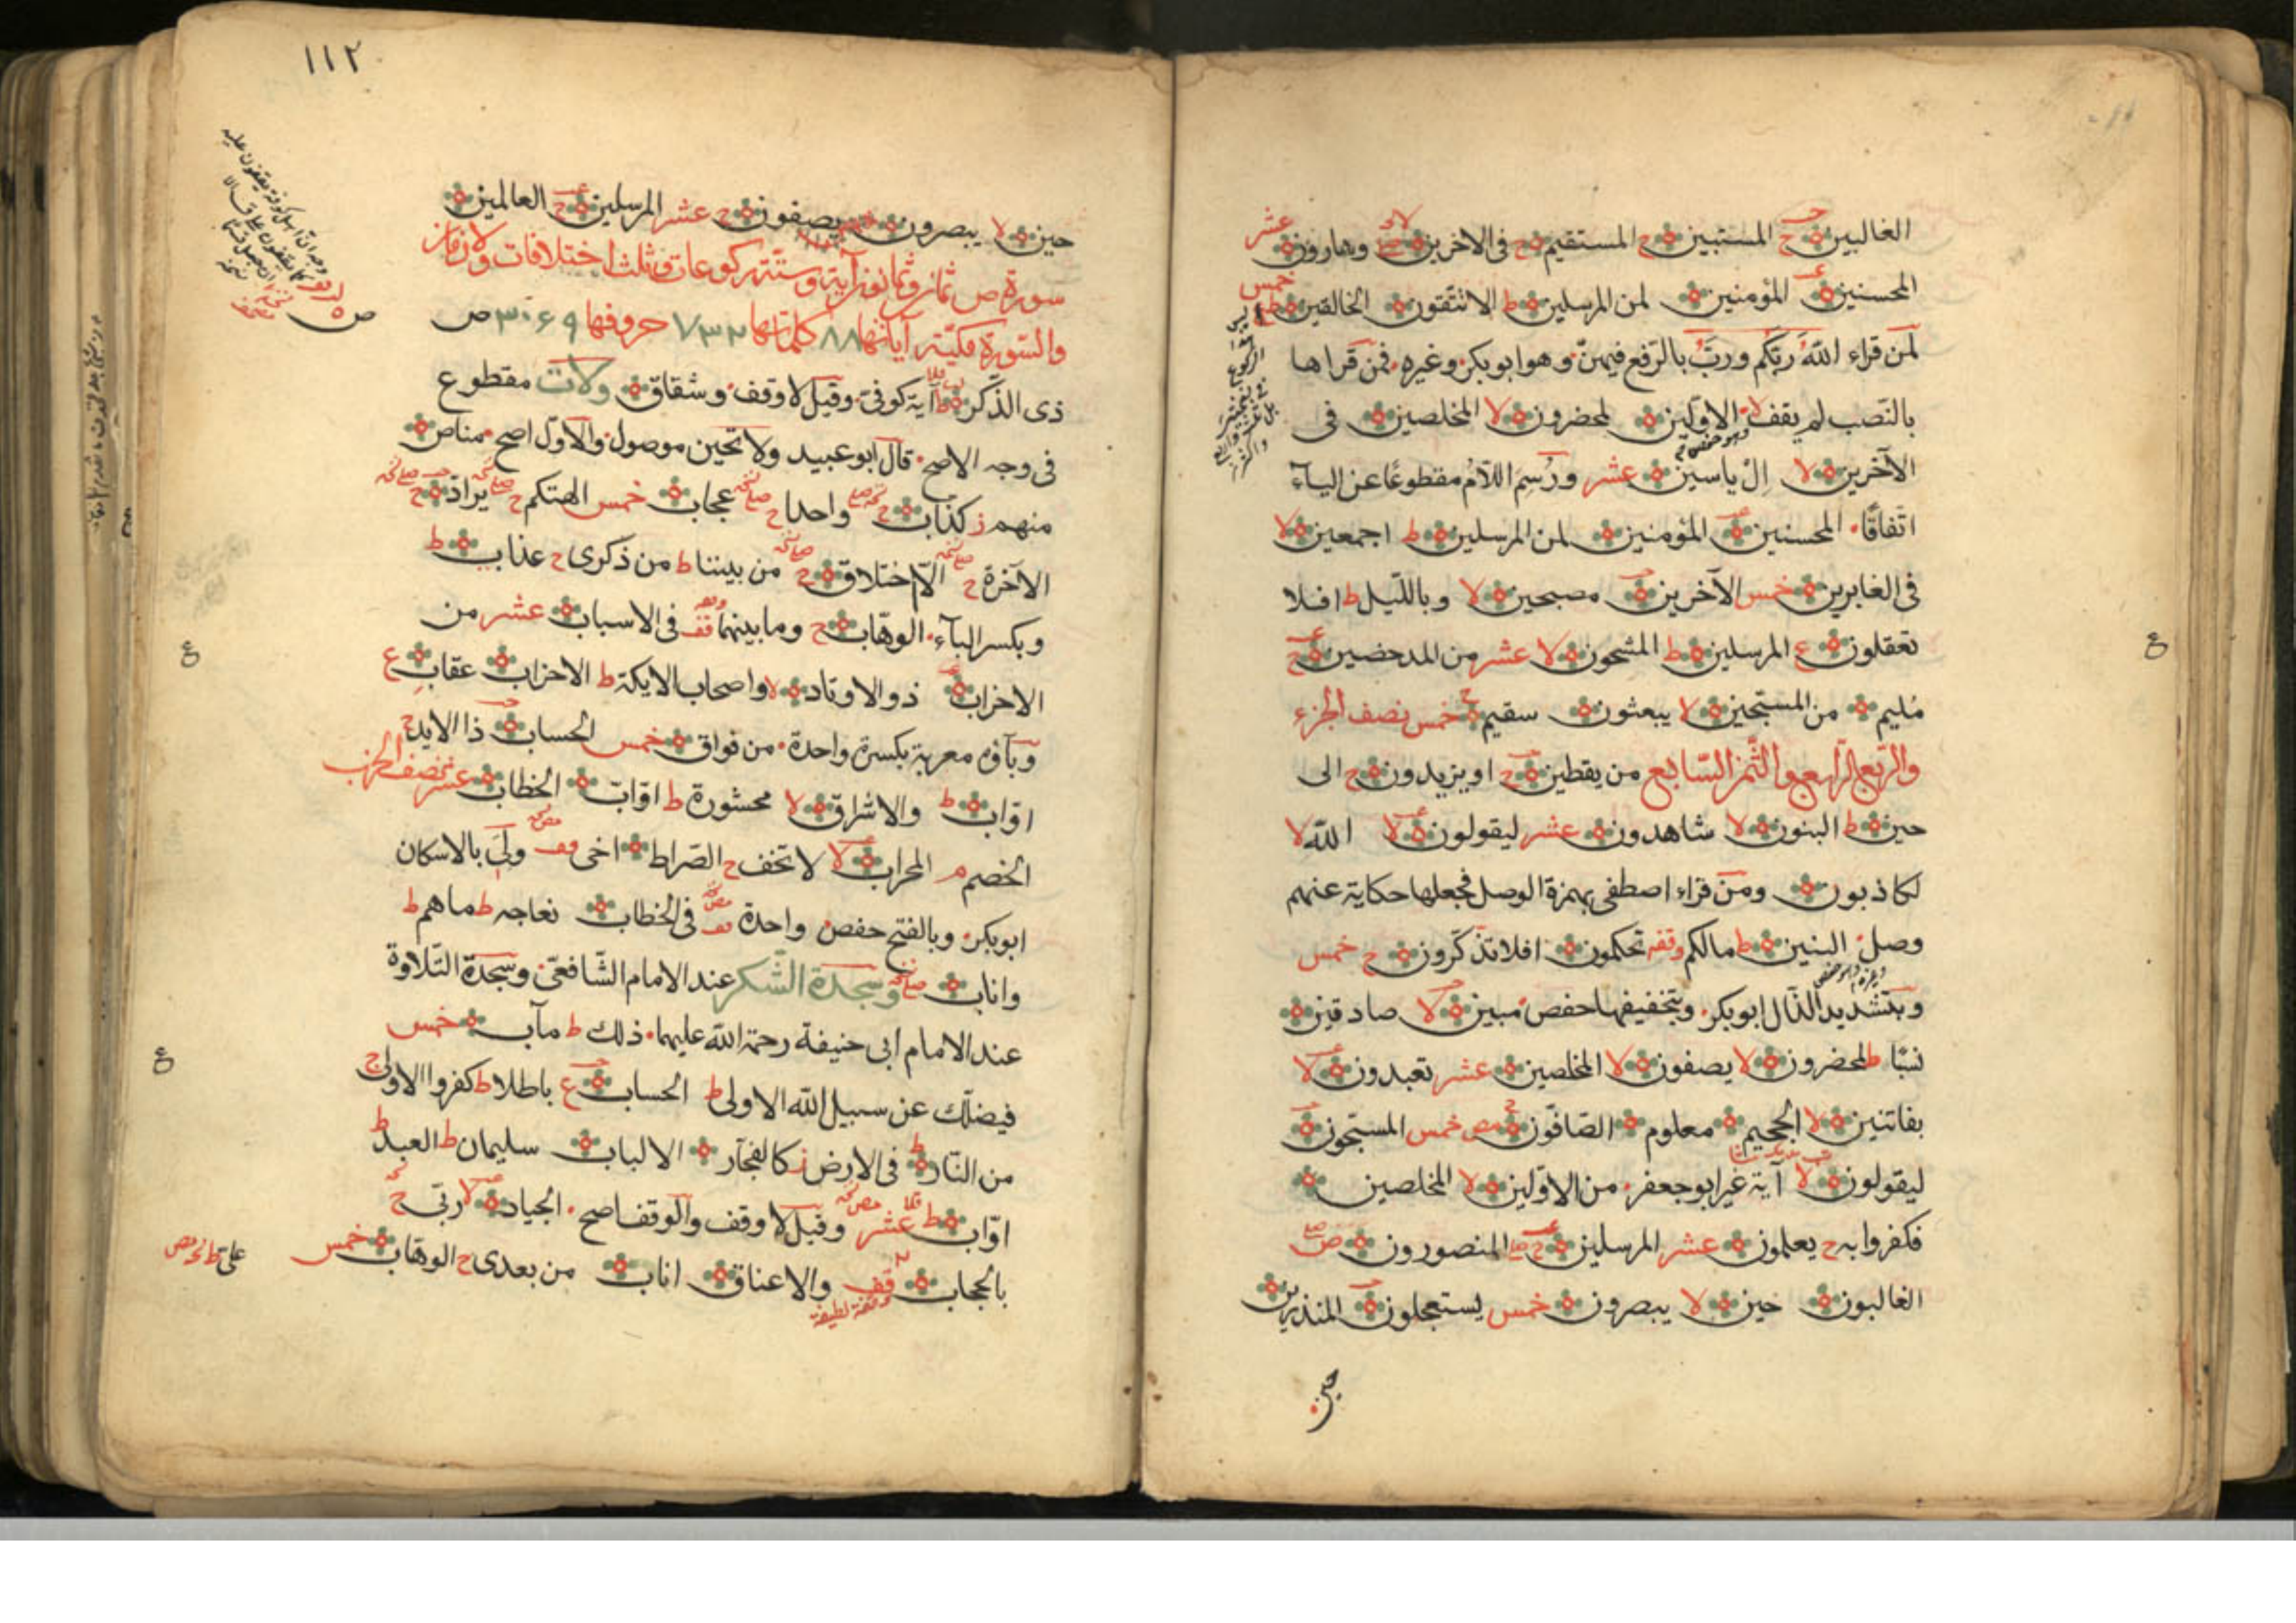 الغالبين ح المستبين ح المستقيم ح فى الاخرين وهارون عشر
المحسنين المؤمنين لمن المرسلين ط الا تتقون الخالقين ط خمس
لمن قراء اللهُ ربُّكم وربُّ بالرّفع فيهنّ وهو ابوبكر وغيره فمن قراها
بالنّصب لم يقف الاوّلين لمحضرون لا المخلصين فى
الآخرين لا اِلْ ياسين عشر ورُسِمَ اللّامُ مقطوعًا عن اليآء
اتفاقًا المحسنين المؤمنين لمن المرسلين ط اجمعين لا
فى الغابرين خمس الآخرين مصبحين لا وباللّيل ط افلا
تعقلون ع المرسلين ط المشحون لا عشر من المدحضين ح
مُليم من المسبّحين لا يبعثون سقيم ج خمس نصف الجزء
والرّبع الرّابع والثّمن السّابع من يقطين ح او يزيدون ح الى
حين ط البنون لا شاهدون عشر ليقولون لا الله لا
لكاذبون ومن قراء اصطفى بهمزة الوصل فجعلها حكاية عنهم
وصل البنين ط مالكم وقفه تحكمون افلا تذكّرون ح خمس
وبتشديد الذّال ابوبكر وبتخفيفها حفص مبين لا صادقين
نسبًا ط لمحضرون لا يصفون لا المخلصين عشر تعبدون لا
بفاتنين لا الجحيم معلوم الصّافّون خمس المسبّحون
ليقولون لا آية غير ابوجعفر من الاوّلين لا المخلصين
فكفروا به ح يعلمون عشر المرسلين ح المنصورون ص
الغالبون حين لا يبصرون خمس يستعجلون المنذرين
حين
١١٢
حين لا يبصرون يصفون ح عشر المرسلين ح العالمين
سورة ص ثمان وثمانون آية وستّة ركوعات وثلث اختلافات
والسّورة مكيّة آياتها ٨٨ كلماتها ٧٣٢ حروفها ٣٠٦٩ ص
ذى الذّكر ط آية كوفى وقيل لا وقف وشقاق ولات مقطوع
فى وجه الاصح قال ابوعبيد ولا تحين موصول والاوّل اصح مناص
منهم ز كذّاب ح واحدا ح عجاب خمس الهتكم ح يراد ح
الآخرة ح الّا اختلاق ح من بيننا ط من ذكرى ح عذاب ط
وبكسر البآء الوهّاب ح وما بينهما قف فى الاسباب عشر من
الاحزاب ذو الاوتاد لا واصحاب الايكة ط الاحزاب عقاب ع
وبآؤه معربة بكسرة واحدة من فواق خمس الحساب ذا الايد ج
اوّاب ط والاشراق لا محشورة ط اوّاب الخطاب عشر نصف الحزب
الخصم م المحراب لا لا تخف ح الصّراط اخى قف ولى بالاسكان
ابوبكر وبالفتح حفص واحدة قف فى الخطاب نعاجه ط ما هم ط
واناب وسجدة الشّكر عند الامام الشّافعى وسجدة التّلاوة
عند الامام ابى حنيفة رحمة الله عليهما ذلك ط مآب خمس
فيضلّك عن سبيل الله الاولى ط الحساب ع باطلا ط كفروا الاولى ج
من النّار ط فى الارض ز كالفجّار الالباب سليمان ط العبد ط
اوّاب ط عشر وقيل لا وقف والوقف اصح الجياد لا ربّى ج
بالحجاب قف والاعناق اناب من بعدى ح الوهّاب خمس
وقفة لطيفة